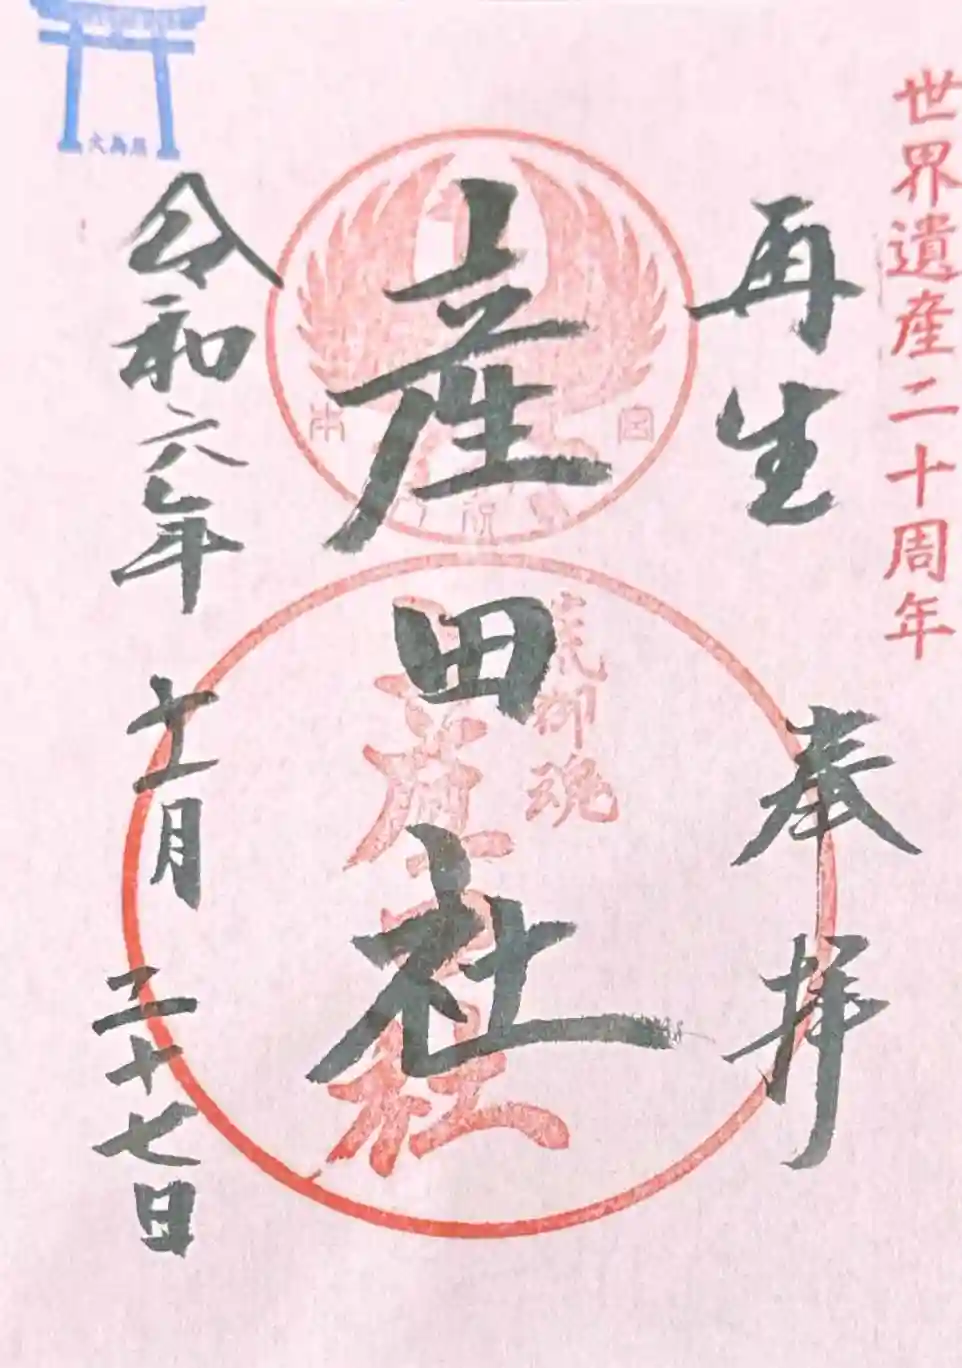 世界遺産二十周年
再生
奉拝
産田社
荒御魂
産田社
令和六年十一月二十七日
大鳥居